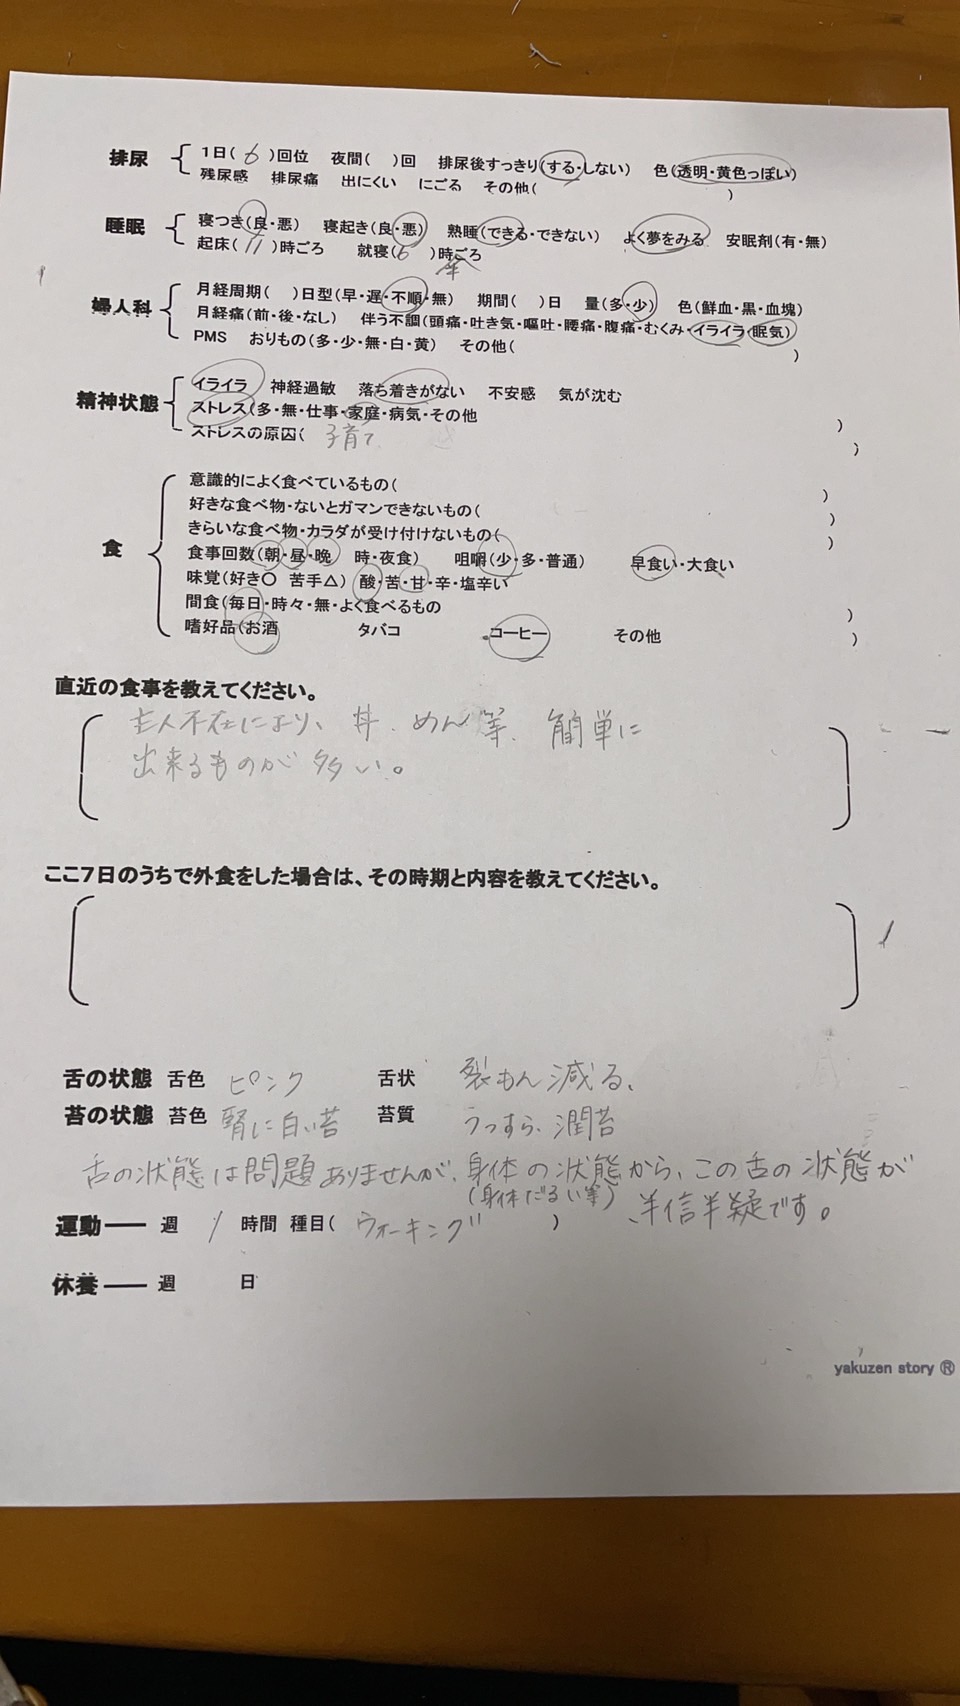 排尿 1日( 6 )回位 夜間( )回 排尿後すっきり(する・しない) 色(透明・黄色っぽい)
残尿感 排尿痛 出にくい にごる その他( )
睡眠 寝つき(良・悪) 寝起き(良・悪) 熟睡(できる・できない) よく夢をみる 安眠剤(有・無)
起床( 11 )時ごろ 就寝( 6 )時ごろ
婦人科 月経周期( )日型(早・遅・不順・無) 期間( )日 量(多・少) 色(鮮血・黒・血塊)
月経痛(前・後・なし) 伴う不調(頭痛・吐き気・嘔吐・腰痛・腹痛・むくみ・イライラ・眠気)
PMS おりもの(多・少・無・白・黄) その他( )
精神状態 イライラ 神経過敏 落ち着きがない 不安感 気が沈む
ストレス(多・無・仕事・家庭・病気・その他 )
ストレスの原因( 子育て )
食 意識的によく食べているもの( )
好きな食べ物・ないとガマンできないもの( )
きらいな食べ物・カラダが受け付けないもの( )
食事回数(朝・昼・晩 時・夜食) 咀嚼(少・多・普通) 早食い・大食い
味覚(好き〇 苦手△) 酸・苦・甘・辛・塩辛い
間食(毎日・時々・無・よく食べるもの )
嗜好品(お酒 タバコ コーヒー その他 )
直近の食事を教えてください。
主人不在により、丼、めん等、簡単に
出来るものが多い。
ここ7日のうちで外食をした場合は、その時期と内容を教えてください。
舌の状態 舌色 ピンク 舌状 裂もん減る、
苔の状態 苔色 腎に白い苔 苔質 うっすら、潤苔
舌の状態は問題ありませんが、身体の状態から、この舌の状態が
(身体だるい等) 、半信半疑です。
運動── 週 1 時間 種目( ウォーキング )
休養── 週 日
yakuzen story Ⓡ